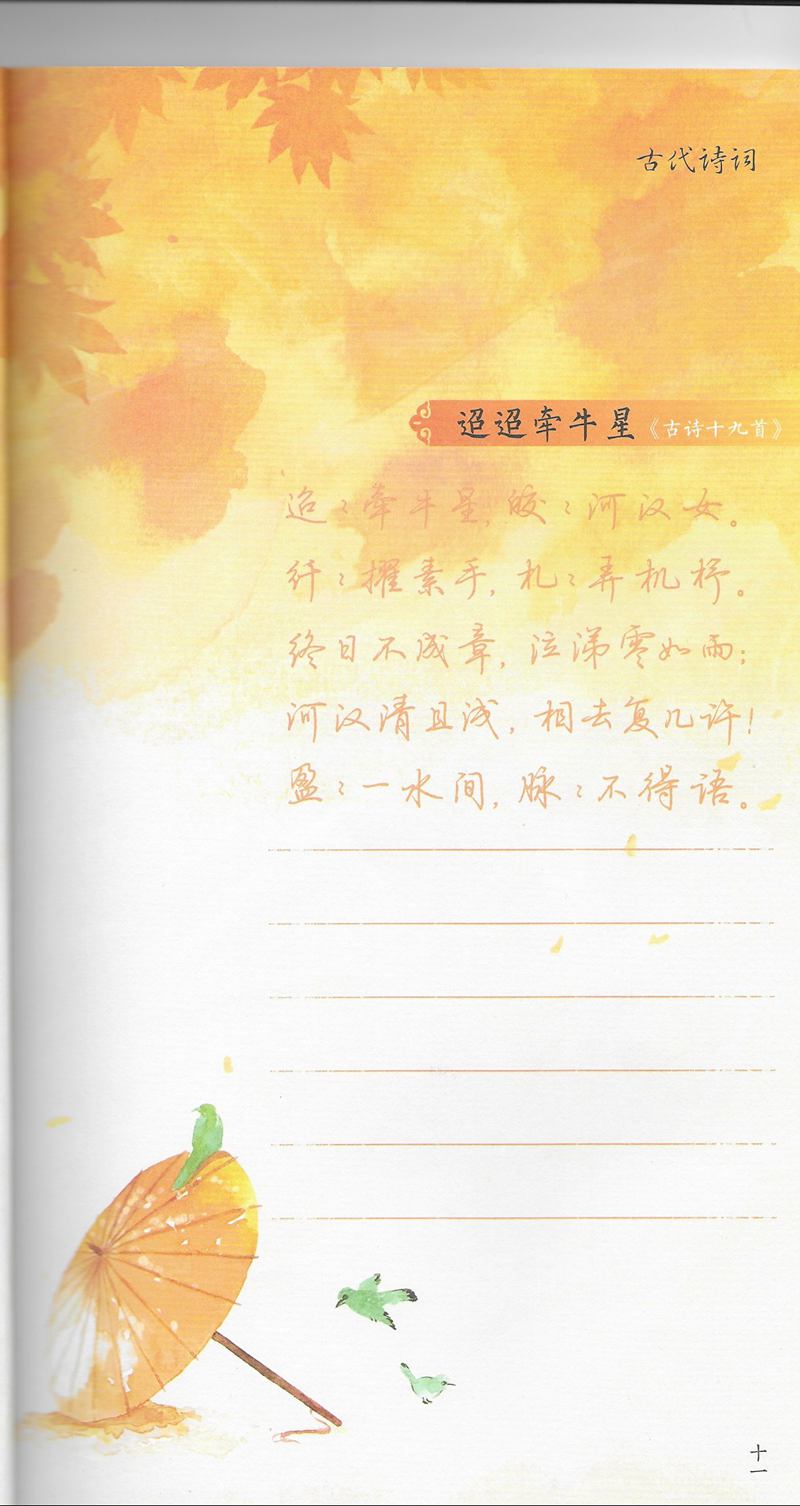 古代诗词
迢迢牵牛星《古诗十九首》
迢:牵牛星,皎:河汉女。
纤:擢素手,札:弄机杼。
终日不成章,泣涕零如雨;
河汉清且浅,相去复几许!
盈:一水间,脉:不得语。
十一